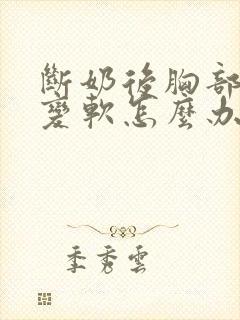 斷奶後胸部
變軟怎麼办
季秀雲